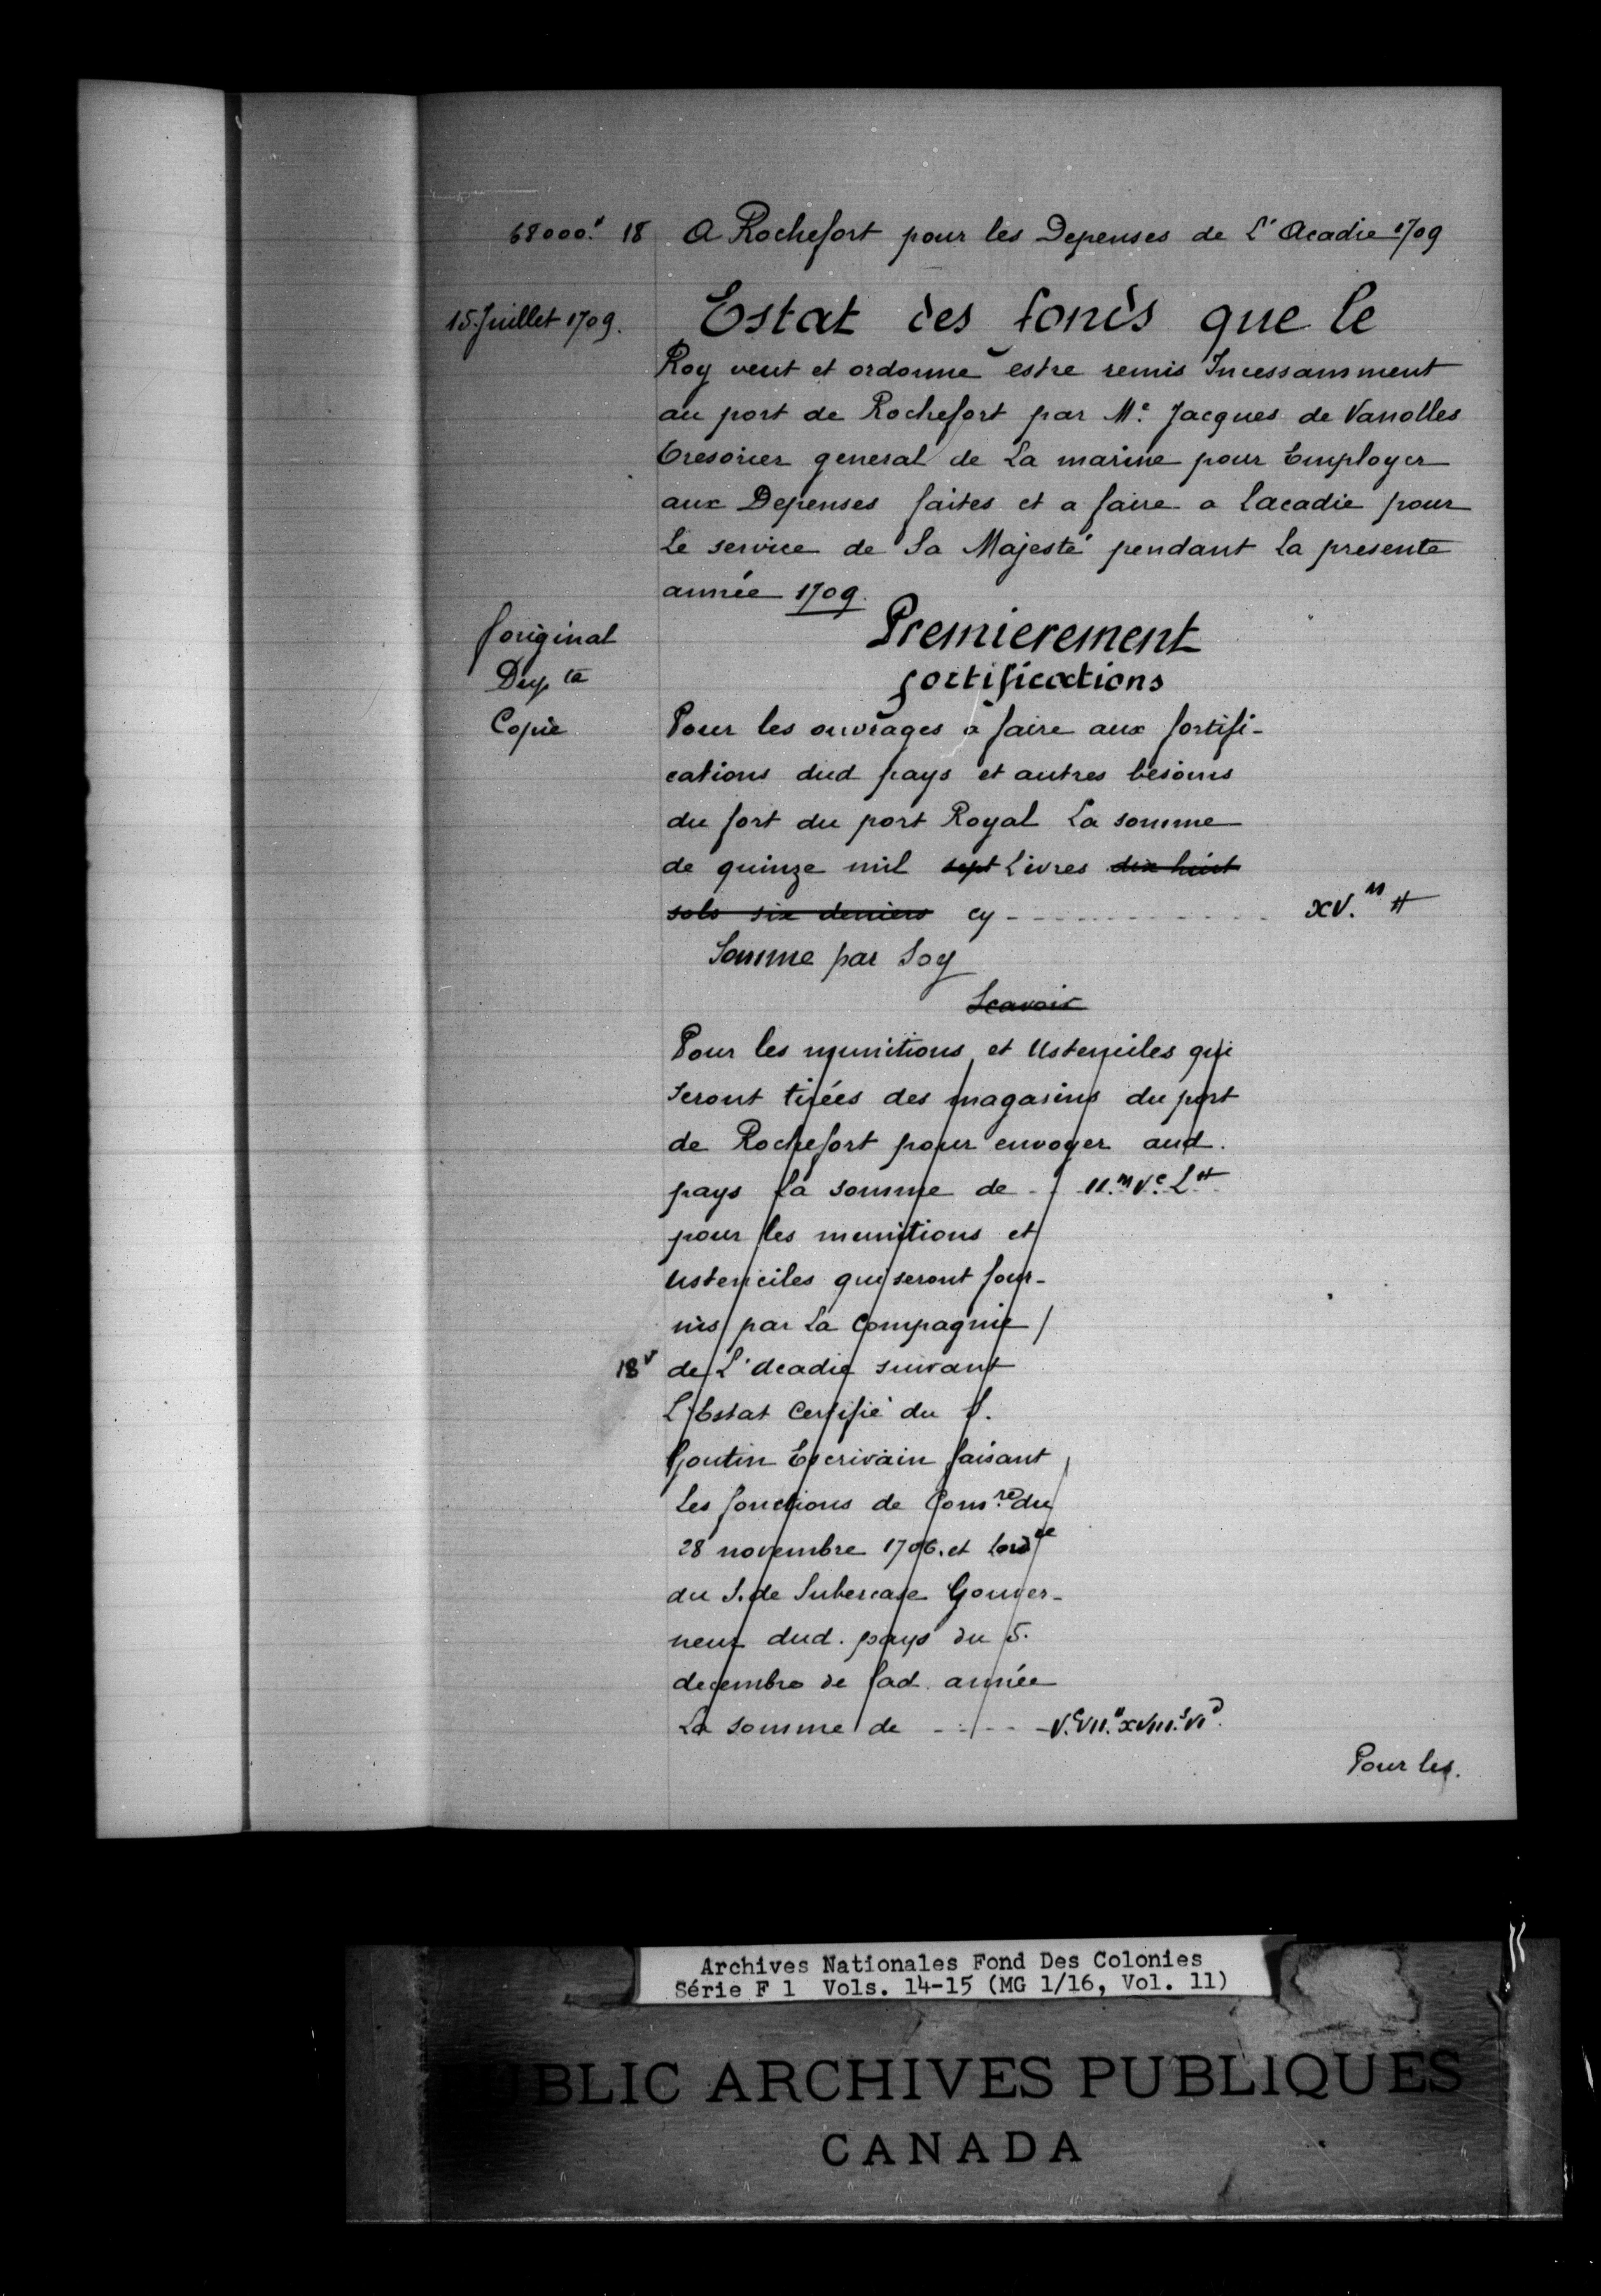 68000.ᵗᵗ 18 A Rochefort pour les Depenses de L'Acadie 1709
15. Juillet 1709. Estat des fonds que le
Roy veut et ordonne estre remis Incessamment
au port de Rochefort par Mᵉ. Jacques de Vanolles
tresorier general de La marine pour Employer
aux Depenses faites et a faire a lacadie pour
Le service de Sa Majesté pendant la presente
année 1709.
original Premierement
Dup.ta fortifications
Copie Pour les ouvrages a faire aux fortifi-
cations dud pays et autres besoins
du fort du port Royal La somme
de quinze mil sept Livres dix huit
sols six deniers cy - - - - - - - - - - XV.ᵐ ᵗᵗ
Somme par Soy
Scavoir
Pour les munitions et Ustenciles qui
Seront tirées des magasins du port
de Rochefort pour envoyer aud.
pays La somme de - - II.ᵐ Vᶜ. Lᵗᵗ
pour les munitions et
Ustenciles qui seront four-
nis par La Compagnie
18ᵛ de L'acadie suivant
L'Estat Certifié du S.
Goutin Escrivain faisant
Les fonctions de Com.re du
28 novembre 1706. et lord.ce
du S. de Subercase Gouver-
neur dud. pays du 5.
decembre de lad. année
La somme de - - - - V.ᶜVII.ᵗᵗ XVIII.ˢ VIᵈ.
Pour les.
Archives Nationales Fond Des Colonies
Série F 1 Vols. 14-15 (MG 1/16, Vol. 11)
PUBLIC ARCHIVES PUBLIQUES
CANADA